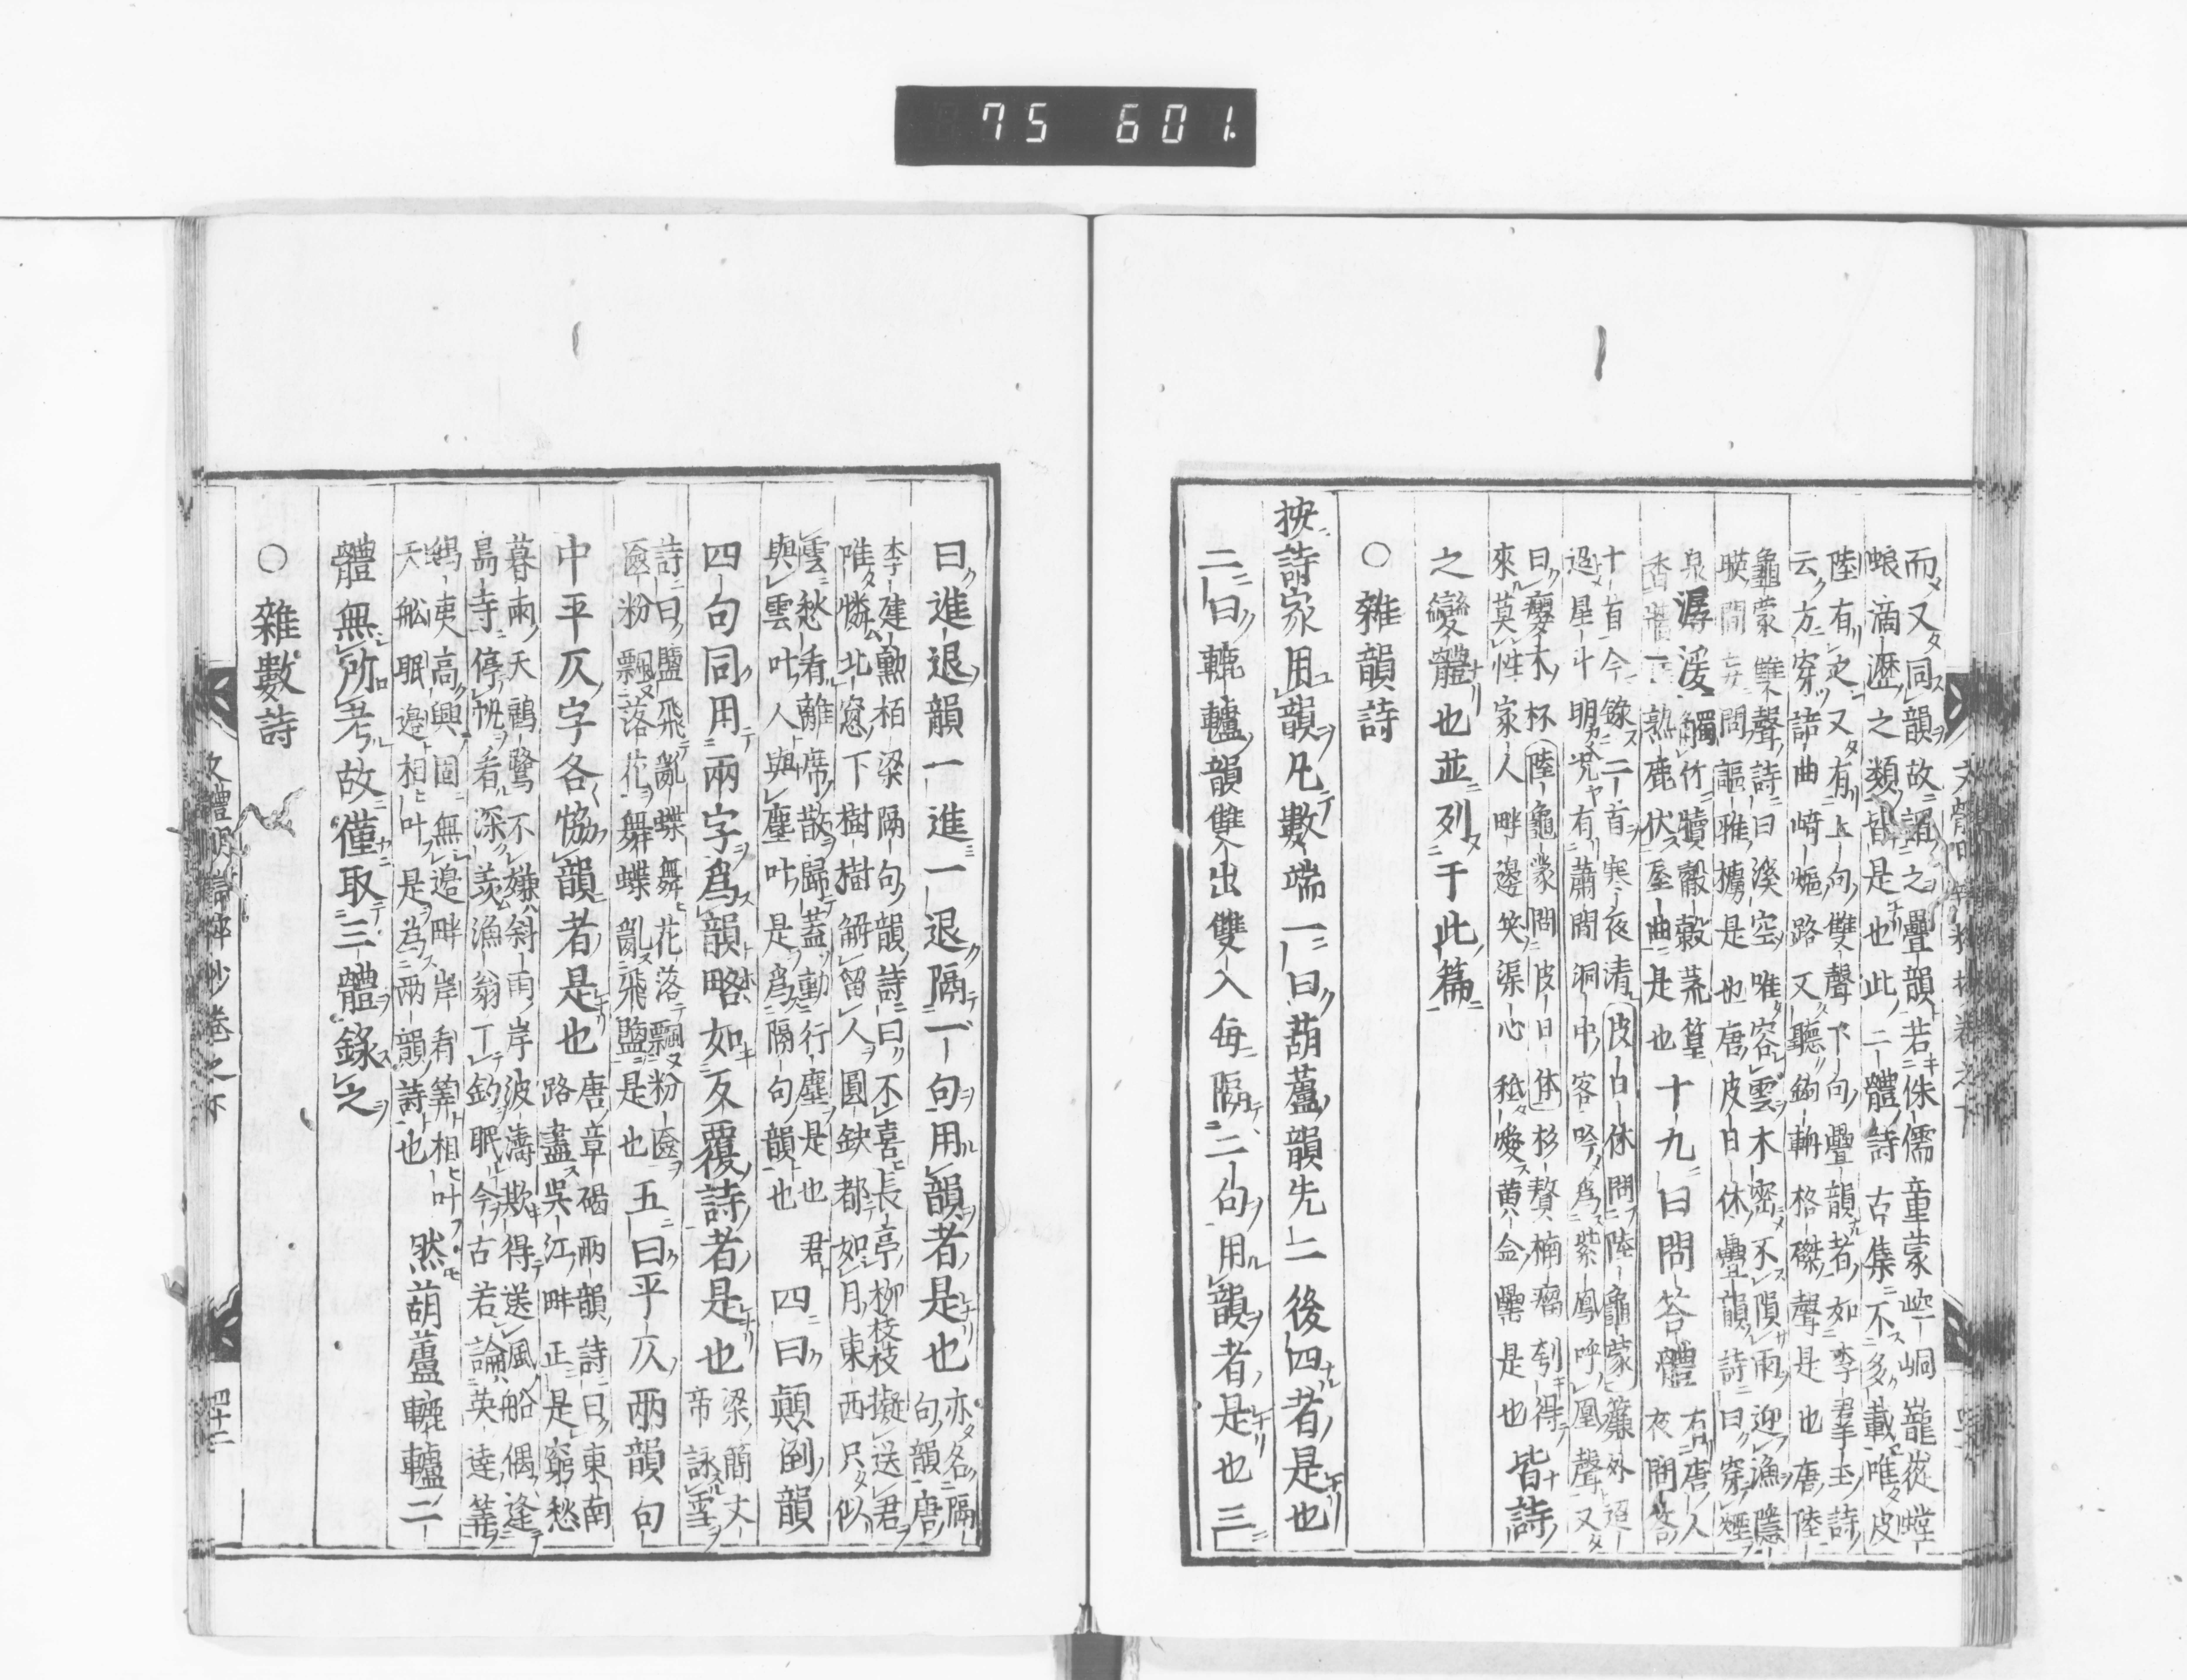 75 601
而又同韻故謂之疊韻若侏儒童蒙崆峒巃嵷螳
蜋滴瀝之類皆是也此二體詩古集不多載唯皮
陸有定又有上句雙聲下句疊韻者如李羣玉詩
云方穿詰曲崎嶇路又聽鉤輈格磔聲是也唐陸
龜蒙雙聲詩曰溪空唯容雲木密不隕雨迎漁隱
映間安問謳雅櫓是也唐皮日休疊韻詩曰穿煙
泉潺湲觸竹犢觳觫荒篁
香牆熟鹿伏屋曲是也
十九曰問答體
右唐人
夜問答
十首今錄二首寒夜清皮日休問陸龜蒙簾外迢
迢星斗明況有蕭閒洞中客吟爲紫鳳呼凰聲又
曰癭木杯陸龜蒙問皮日休杉贅楠瘤刳得
來莫怪家人畔邊笑渠心秪愛黄金罍是也
皆詩
之變體也並列于此篇
○雜韻詩
按詩家用韻凡數端一曰葫蘆韻先二後四者是也
二曰轆轤韻雙出雙入毎隔二句用韻者是也三
曰進退韻一進一退隔一句用韻者是也
亦名隔
句韻唐
李建勳栢梁隔句韻詩曰不喜長亭柳枝枝擬送君
唯憐北窓下樹樹解留人圓鈌都如月東西只似
雲愁看離席散歸蓋動行塵是也君
與雲叶人與塵叶是爲隔句韻也
四曰顛倒韻
四句同用兩字爲韻略如反覆詩者是也
梁簡文
帝詠雪
詩曰鹽飛亂蝶舞花落飄粉奩
奩粉飄落花舞蝶亂飛鹽是也
五曰平仄兩韻句
中平仄字各恊韻者是也
唐章碣兩韻詩曰東南
路盡吳江畔正是窮愁
暮雨天鷗鷺不嫌斜雨岸波濤欺得送風船偶逢
島寺停帆看深羨漁翁丁釣眠今古若論英達筭
鴟夷高興固無邊畔岸看筭相叶
天舩眠邉相叶是為兩韻詩也
然葫蘆轆轤二
體無所考故僅取三體錄之
○雜數詩
文體明辯粹抄卷之下
四十二